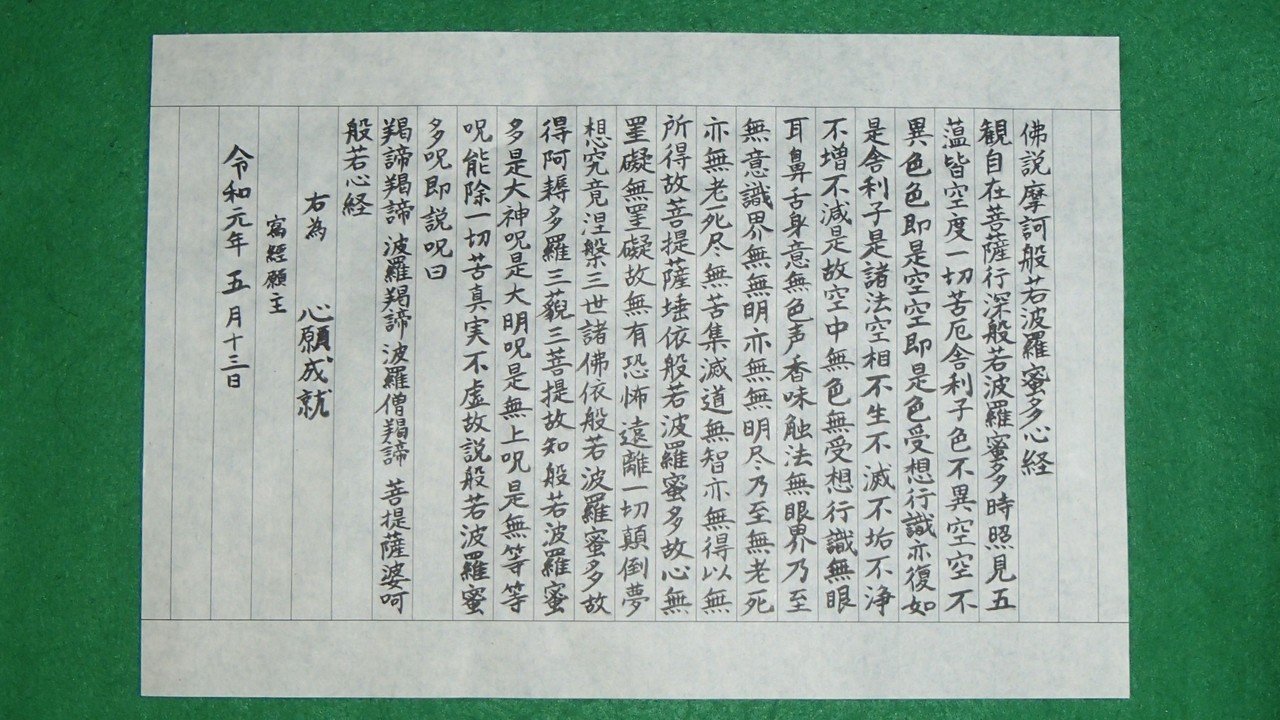 佛説摩訶般若波羅蜜多心経
観自在菩薩行深般若波羅蜜多時照見五
薀皆空度一切苦厄舎利子色不異空空不
異色色即是空空即是色受想行識亦復如
是舎利子是諸法空相不生不滅不垢不浄
不増不減是故空中無色無受想行識無眼
耳鼻舌身意無色声香味触法無眼界乃至
無意識界無無明亦無無明尽乃至無老死
亦無老死尽無苦集滅道無智亦無得以無
所得故菩提薩埵依般若波羅蜜多故心無
罣礙無罣礙故無有恐怖遠離一切顛倒夢
想究竟涅槃三世諸佛依般若波羅蜜多故
得阿耨多羅三藐三菩提故知般若波羅蜜
多是大神呪是大明呪是無上呪是無等等
呪能除一切苦真実不虚故説般若波羅蜜
多呪即説呪曰
羯諦羯諦 波羅羯諦 波羅僧羯諦 菩提薩婆呵
般若心経
右為 心願成就
寫經願主
令和元年五月十三日